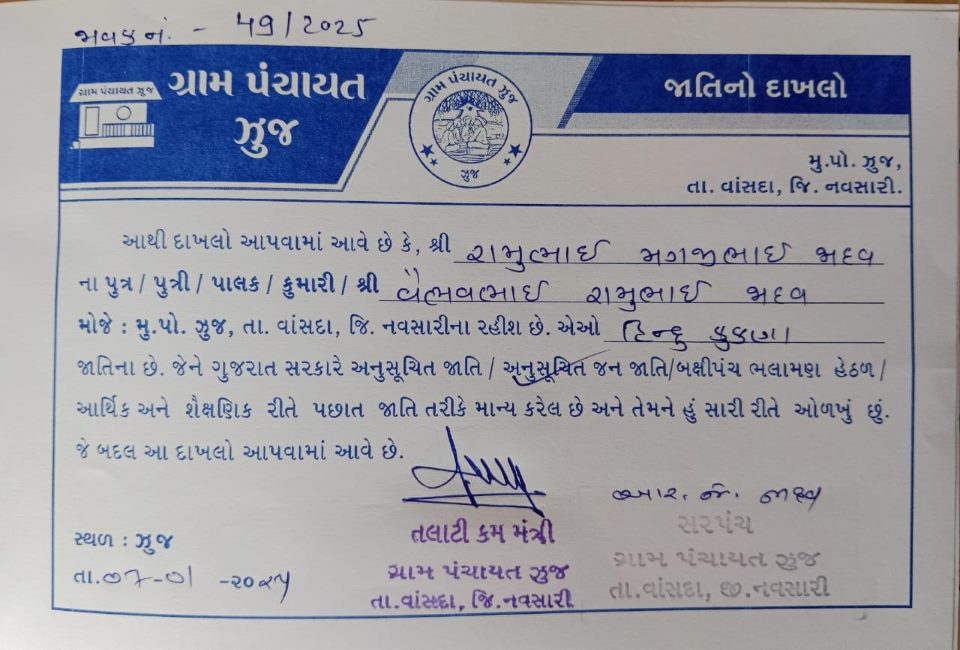 જાવક નં. - 49/2025
ગ્રામ પંચાયત ઝુજ
ગ્રામ પંચાયત
ઝુજ
ગ્રામ પંચાયત ઝુજ
ઝુજ
જાતિનો દાખલો
મુ.પો. ઝુજ,
તા. વાંસદા, જિ. નવસારી.
આથી દાખલો આપવામાં આવે છે કે, શ્રી રામુભાઈ મગજીભાઈ જાદવ
ના પુત્ર / પુત્રી / પાલક / કુમારી / શ્રી વૈભવભાઈ રામુભાઈ જાદવ
મોજે : મુ.પો. ઝુજ, તા. વાંસદા, જિ. નવસારીના રહીશ છે. એઓ હિન્દુ કુકણા
જાતિના છે. જેને ગુજરાત સરકારે અનુસૂચિત જાતિ / અનુસૂચિત જન જાતિ/બક્ષીપંચ ભલામણ હેઠળ /
આર્થિક અને શૈક્ષણિક રીતે પછાત જાતિ તરીકે માન્ય કરેલ છે અને તેમને હું સારી રીતે ઓળખું છું.
જે બદલ આ દાખલો આપવામાં આવે છે.
આર. જે. જાદવ
તલાટી કમ મંત્રી
સરપંચ
સ્થળ : ઝુજ
ગ્રામ પંચાયત ઝુજ
ગ્રામ પંચાયત ઝુજ
તા.૦૭-૦૧ -૨૦૨૫
તા.વાંસદા, જિ.નવસારી
તા.વાંસદા, જી.નવસારી